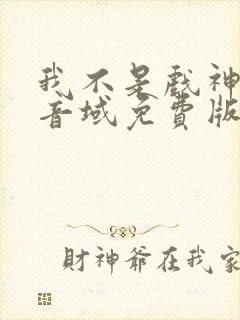 我不是戲神
音域免費版
財神爺在我家